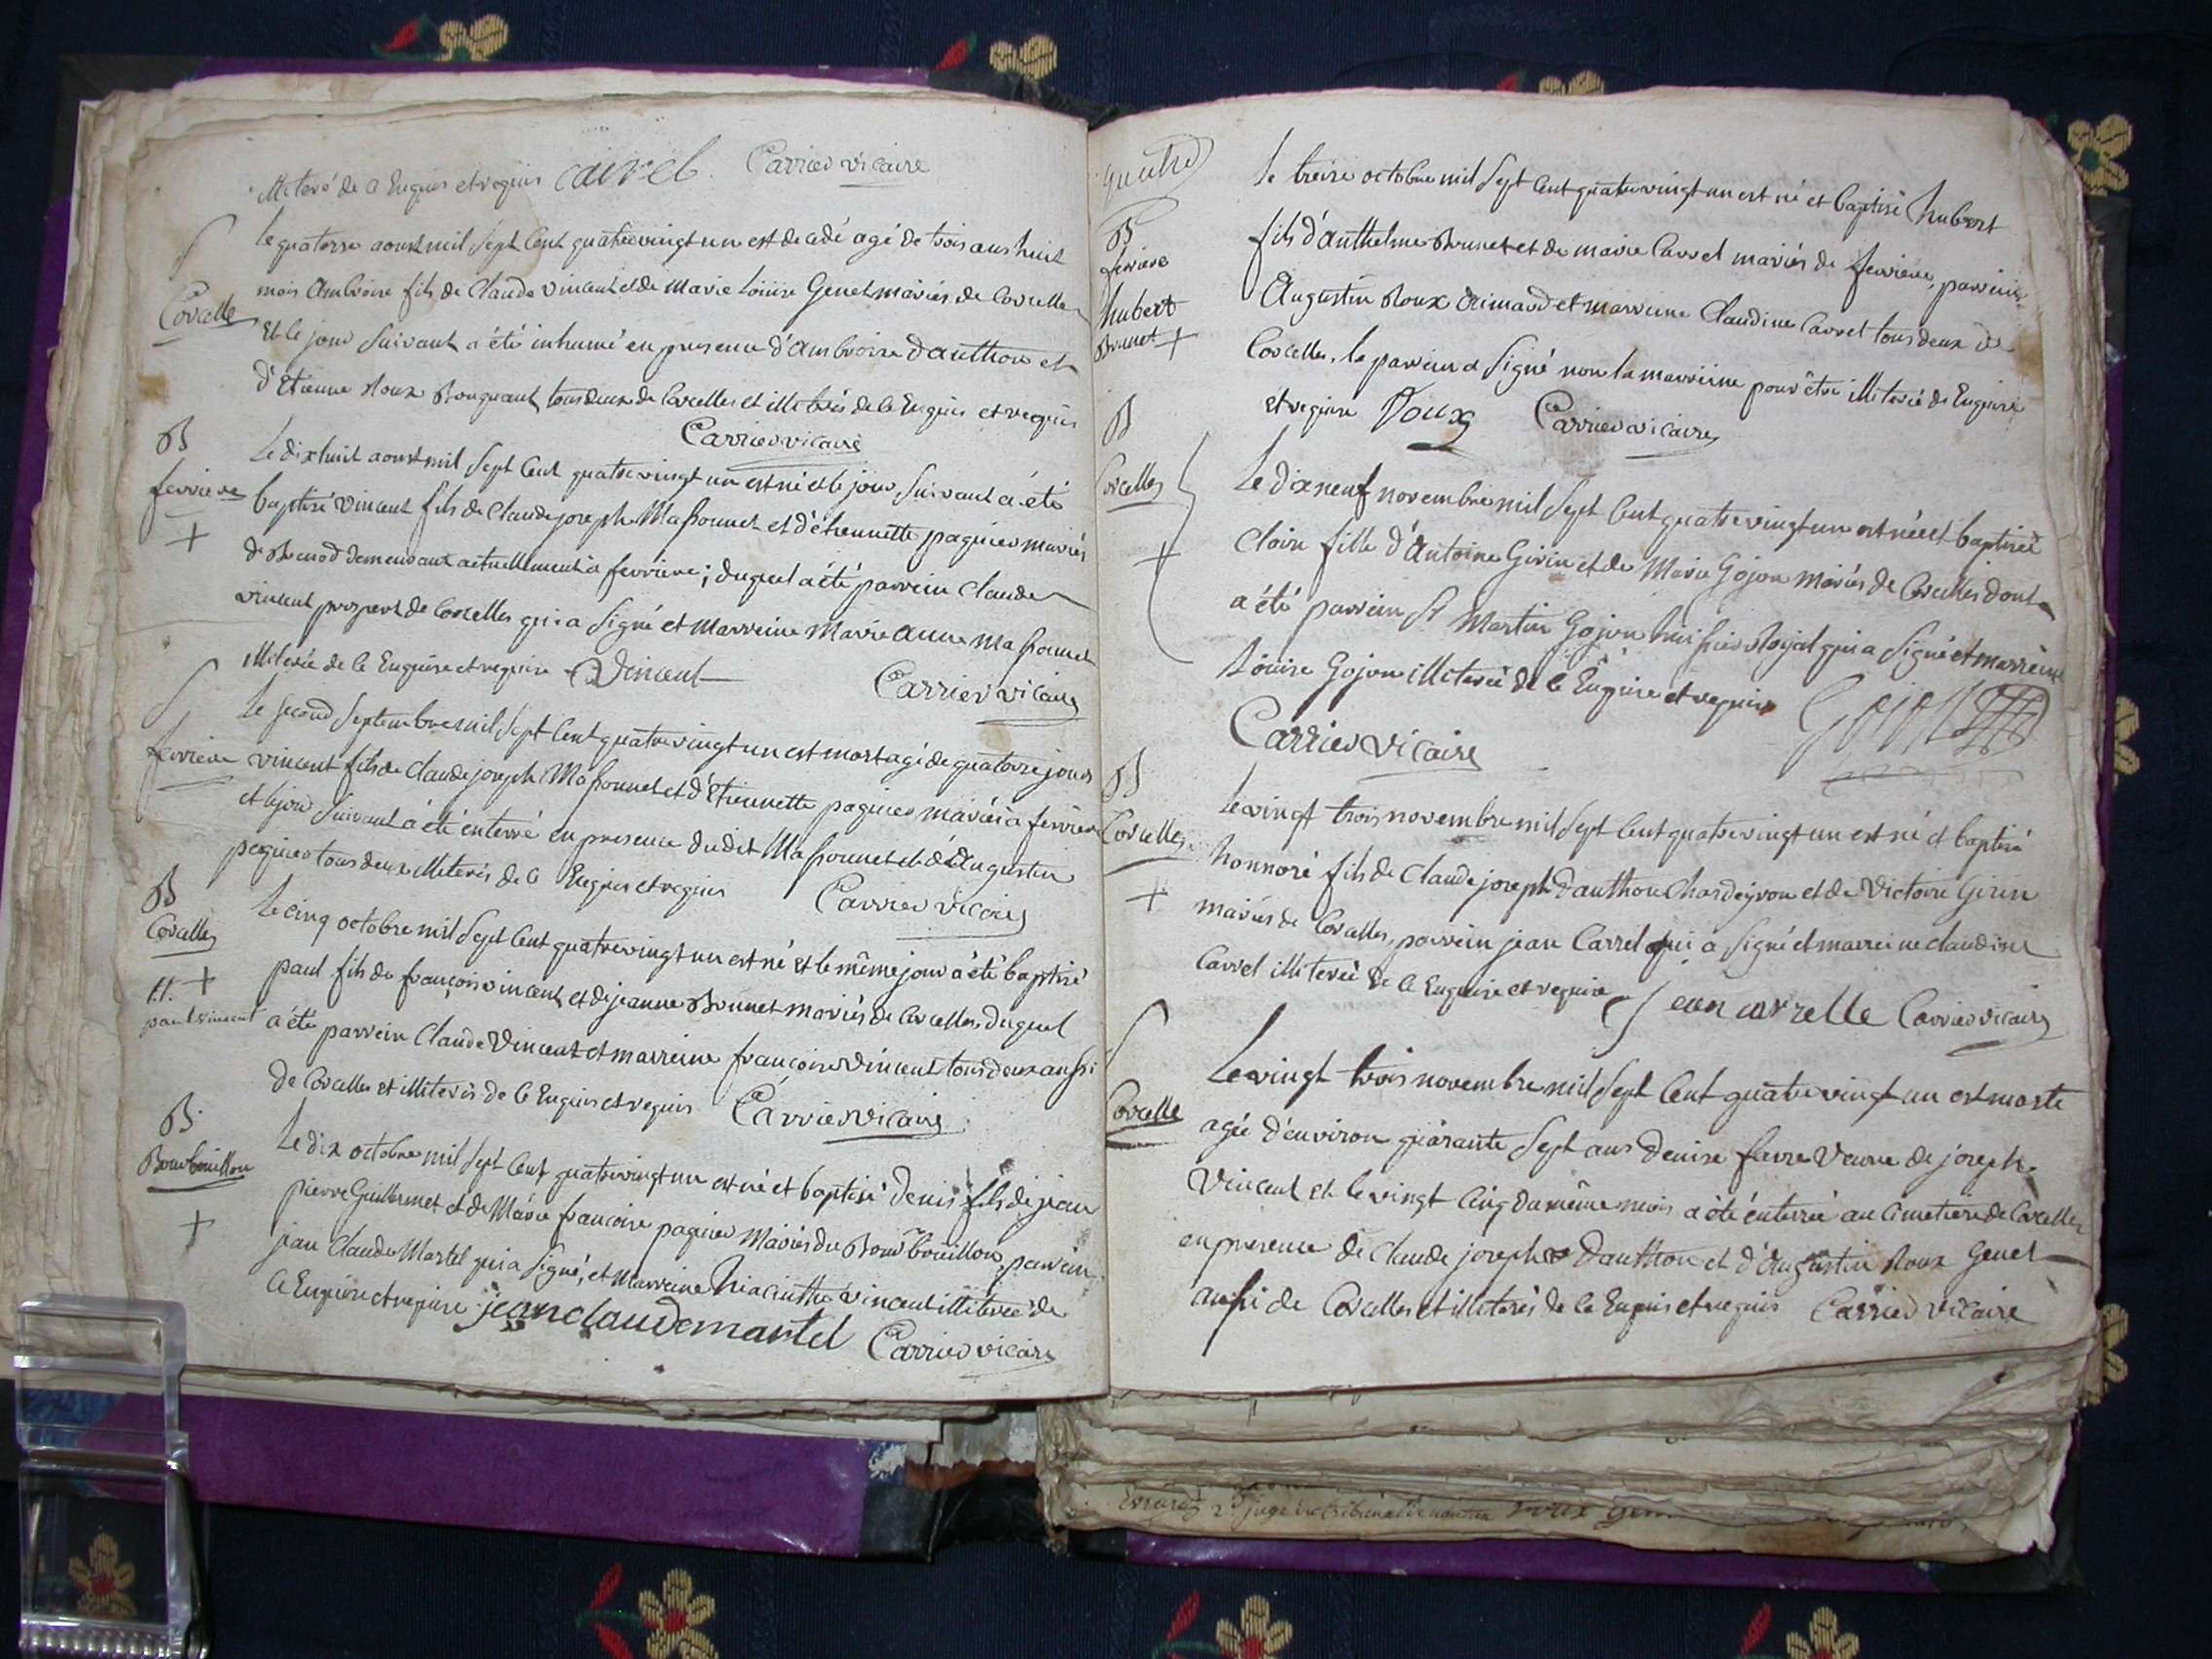 illiteré de ce Enquis et requis cairel. Carrier vicaire
S
Corcelle
le quatorze aoust mil sept cent quatrevingt un est decedé agé de trois ans huit
mois Ambroise fils de Claude vincent et de Marie Louise Genet mariés de Corcelle
Et le jour suivant a été inhumé en presence d'Ambroise Dauthon et
d'Etienne Roux Bouquant tous deux de Corcelles et illiterés de ce Enquis et requis
Carrier vicaire
B
ferriere
+
Le dixhuit aoust mil sept cent quatrevingt un est né et le jour suivant a été
baptisé vincent fils de Claude joseph Massonnet et d'étiennette paginer mariés
de demeurant actuellement à ferriere; duquel a été parrein Claude
vincent prospert de Corcelles qui a signé et Marreine Marie anne Massonnet
illiterée de ce Enquise et requise C Vincent Carrier vicaire
S
ferriere
Le second septembre mil sept cent quatrevingt un est mort agé de quatorze jours
vincent fils de Claude joseph Massonnet et d'Etiennette paginer mariés à ferriere
et le jour suivant a été enterré en presence dudit Massonnet et d'Augustin
paginer tous deux illiterés de ce Enquis et requis Carrier vicaire
B
Corcelles
+
paul vincent
Le cinq octobre mil sept cent quatrevingt un est né et le même jour a été baptisé
paul fils de françois vincent et de jeanne Brunet mariés de Corcelles, duquel
a été parrein Claude Vincent et marreine françoise Vincent tous deux aussi
de Corcelles et illiterés de ce Enquis et requis Carrier vicaire
B
Bourbouillon
+
Le dix octobre mil sept cent quatrevingt un est né et baptisé denis fils de jean
pierre Guillermet et de Marie françoise paginer Mariés du Bourbouillon, parrein
jean Claude Martel qui a signé, et Marreine hiacinthe vincent illiterée de
ce Enquise et requise jean claude martel Carrier vicaire
quatre
B
ferriere
hubert
Brunet +
le treize octobre mil sept cent quatrevingt un est né et baptisé hubert
fils d'Anthelme Brunet et de marie Carrel mariés de ferriere, parrein
Augustin Roux Grimaud et marreine Claudine Carrel tous deux de
Corcelles, le parrein a signé non la marreine pour être illiterée de Enquise
et requise Roux Carrier vicaire
B
Corcelles
+
Le dixneuf novembre mil sept cent quatrevingt un est née et baptisée
Claire fille d'Antoine Girin et de Marie Gojon mariés de Corcelles dont
a été parrein Sr Martin Gojon huissier Royal qui a signé et marreine
Louise Gojon illiterée de ce Enquise et requise Gojon
Carrier vicaire
B
Corcelles
+
Le vingt trois novembre mil sept cent quatrevingt un est né et baptisé
honnoré fils de Claude joseph Dauthon Chardeyron et de Victoire Girin
mariés de Corcelles, parrein jean Carrel qui a signé et marreine claudine
Carrel illiterée de ce Enquise et requise Jean carrelle Carrier vicaire
S
Corcelle
Le vingt trois novembre mil sept cent quatrevingt un est morte
agée d'environ quarante sept ans denise ferre veuve de joseph
Vincent et le vingt cinq du même mois a été enterrée au cimetiere de Corcelles
en presence de Claude joseph Dauthon et d'Augustin Roux Genet
aussi de Corcelles et illiterés de ce Enquis et requis Carrier vicaire